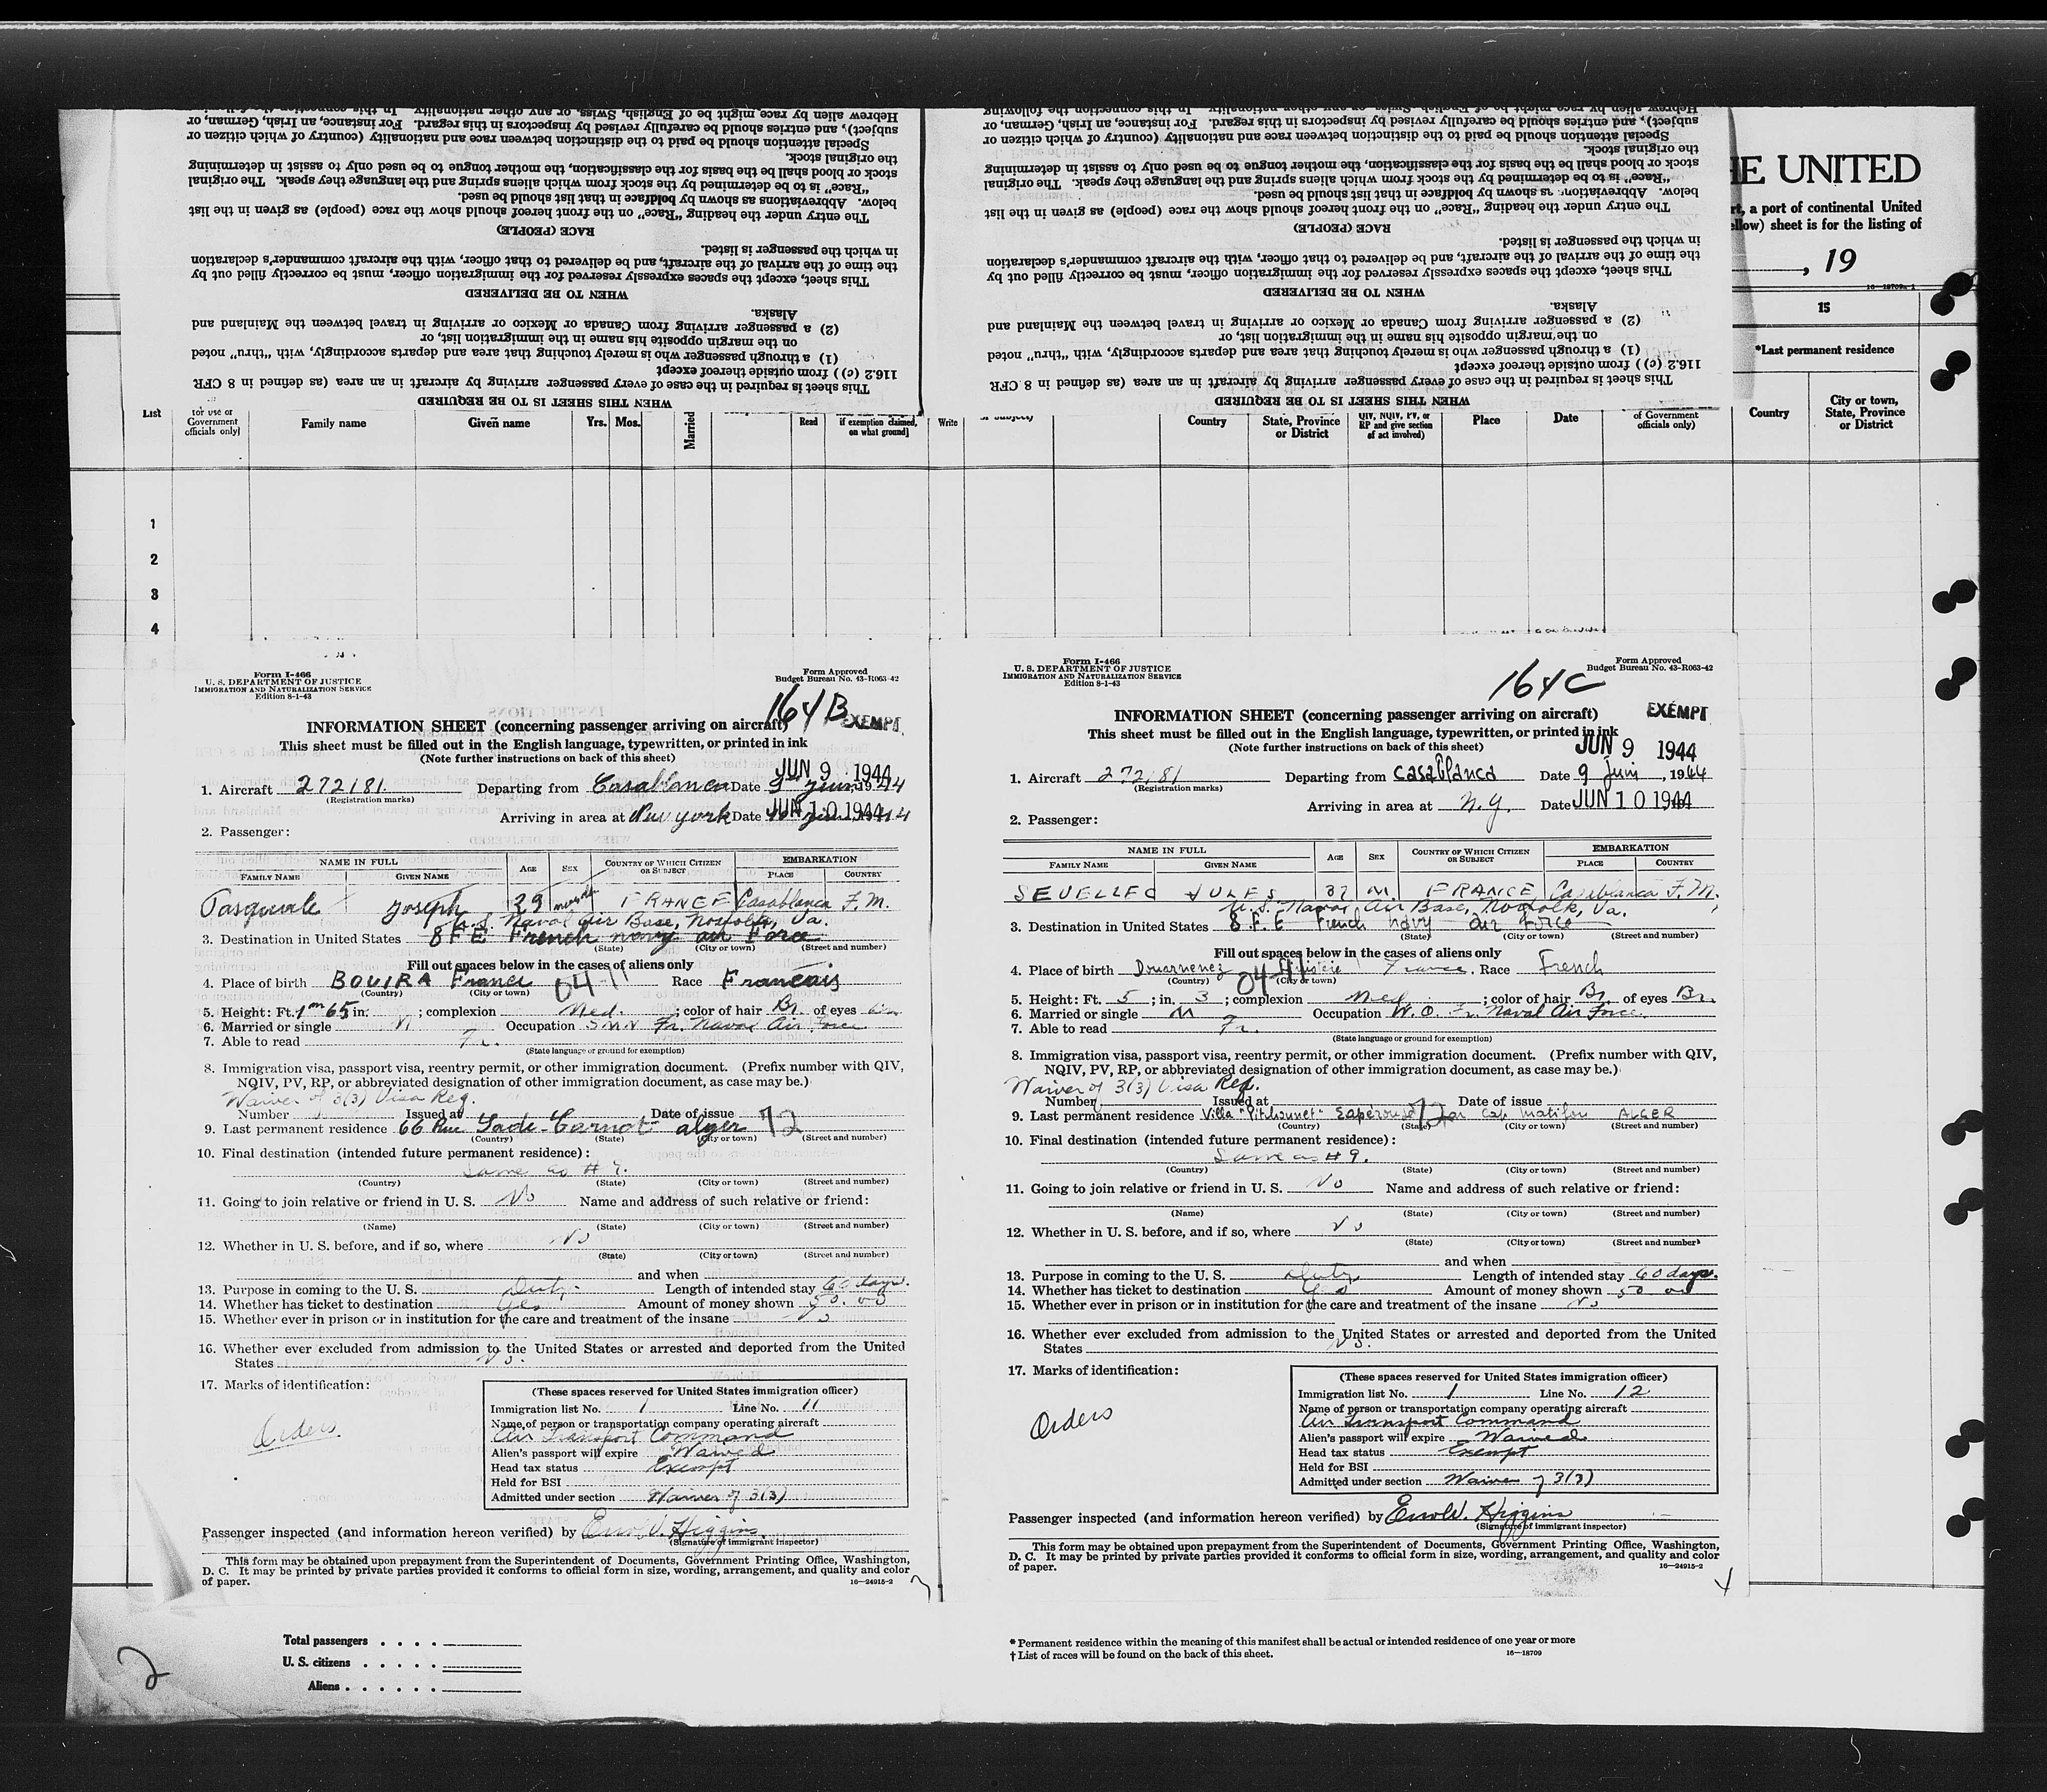 Hebrew alien by race might be of English, Swiss, or any other nationality. In this connection the following
subject), and entries should be carefully revised by inspectors in this regard. For instance, an Irish, German, or
Special attention should be paid to the distinction between race and nationality (country of which citizen or
the original stock.
stock or blood shall be the basis for the classification, the mother tongue to be used only to assist in determining
"Race" is to be determined by the stock from which aliens spring and the language they speak. The original
below. Abbreviations as shown by boldface in that list should be used.
The entry under the heading "Race" on the front hereof should show the race (people) as given in the list
RACE (PEOPLE)
in which the passenger is listed.
the time of the arrival of the aircraft, and be delivered to that officer, with the aircraft commander's declaration
This sheet, except the spaces expressly reserved for the immigration officer, must be correctly filled out by
WHEN TO BE DELIVERED
Alaska.
(2) a passenger arriving from Canada or Mexico or arriving in travel between the Mainland and
on the margin opposite his name in the immigration list, or
(1) a through passenger who is merely touching that area and departs accordingly, with "thru" noted
116.2 (c)) from outside thereof except
This sheet is required in the case of every passenger arriving by aircraft in an area (as defined in 8 CFR
WHEN THIS SHEET IS TO BE REQUIRED
Hebrew alien by race might be of English, Swiss, or any other nationality. In this connection the following
subject), and entries should be carefully revised by inspectors in this regard. For instance, an Irish, German, or
Special attention should be paid to the distinction between race and nationality (country of which citizen or
the original stock.
stock or blood shall be the basis for the classification, the mother tongue to be used only to assist in determining
"Race" is to be determined by the stock from which aliens spring and the language they speak. The original
below. Abbreviations as shown by boldface in that list should be used.
The entry under the heading "Race" on the front hereof should show the race (people) as given in the list
RACE (PEOPLE)
in which the passenger is listed.
the time of the arrival of the aircraft, and be delivered to that officer, with the aircraft commander's declaration
This sheet, except the spaces expressly reserved for the immigration officer, must be correctly filled out by
WHEN TO BE DELIVERED
Alaska.
(2) a passenger arriving from Canada or Mexico or arriving in travel between the Mainland and
on the margin opposite his name in the immigration list, or
(1) a through passenger who is merely touching that area and departs accordingly, with "thru" noted
116.2 (c)) from outside thereof except
This sheet is required in the case of every passenger arriving by aircraft in an area (as defined in 8 CFR
WHEN THIS SHEET IS TO BE REQUIRED
HE UNITED
rt, a port of continental United
ellow) sheet is for the listing of
, 19
15
*Last permanent residence
Country City or town, State, Province or District
List (for use of Government officials only) Family name Given name Yrs. Mos. Married Read if exemption claimed, on what ground] Write
or subject) Country State, Province or District QIV, NQIV, PV, or RP and give section of act involved) Place Date of Government officials only)
1
2
3
4
Form I-466
U. S. DEPARTMENT OF JUSTICE
IMMIGRATION AND NATURALIZATION SERVICE
Edition 8-1-43
Form Approved
Budget Bureau No. 43-R063-42
164B
EXEMPT
INFORMATION SHEET (concerning passenger arriving on aircraft)
This sheet must be filled out in the English language, typewritten, or printed in ink
(Note further instructions on back of this sheet)
JUN 9 1944
1. Aircraft 272181 Departing from Casablanca Date 9 Juin 1944
(Registration marks)
Arriving in area at New york Date JUN 10 1944
2. Passenger:
NAME IN FULL AGE SEX COUNTRY OF WHICH CITIZEN OR SUBJECT EMBARKATION
FAMILY NAME GIVEN NAME PLACE COUNTRY
Pasquale Joseph 29 FRANCE Casablanca F.M.
U.S. Naval Air Base, Norfolk, Va.
3. Destination in United States 8 F E French navy air Force
(State) (City or town) (Street and number)
Fill out spaces below in the cases of aliens only
4. Place of birth BOUIRA France 04-11 Race Francais
(Country) (City or town)
5. Height: Ft. 1m 65 in. ; complexion Med. ; color of hair Br. of eyes
6. Married or single Occupation Fr. Naval Air Force
7. Able to read Fr.
(State language or ground for exemption)
8. Immigration visa, passport visa, reentry permit, or other immigration document. (Prefix number with QIV,
NQIV, PV, RP, or abbreviated designation of other immigration document, as case may be.)
Waiver of 3(3) Visa Req.
Number Issued at Date of issue
9. Last permanent residence 66 Rue Sadi-Carnot alger 72
(Country) (State) (City or town) (Street and number)
10. Final destination (intended future permanent residence):
Same as # 9.
(Country) (State) (City or town) (Street and number)
11. Going to join relative or friend in U. S. No Name and address of such relative or friend:
(Name) (State) (City or town) (Street and number)
12. Whether in U. S. before, and if so, where No
(State) (City or town) (Street and number)
and when
13. Purpose in coming to the U. S. Duty Length of intended stay 60 days.
14. Whether has ticket to destination Yes Amount of money shown 50.00
15. Whether ever in prison or in institution for the care and treatment of the insane No
16. Whether ever excluded from admission to the United States or arrested and deported from the United
States No.
17. Marks of identification:
Orders
(These spaces reserved for United States immigration officer)
Immigration list No. 1 Line No. 11
Name of person or transportation company operating aircraft
Air Transport Command
Alien's passport will expire Waived
Head tax status Exempt
Held for BSI
Admitted under section Waiver of 3(3)
Passenger inspected (and information hereon verified) by Errol V. Higgins
(Signature of immigrant inspector)
This form may be obtained upon prepayment from the Superintendent of Documents, Government Printing Office, Washington,
D. C. It may be printed by private parties provided it conforms to official form in size, wording, arrangement, and quality and color
of paper.
16-24915-2
Form I-466
U. S. DEPARTMENT OF JUSTICE
IMMIGRATION AND NATURALIZATION SERVICE
Edition 8-1-43
Form Approved
Budget Bureau No. 43-R063-42
164C
EXEMPT
INFORMATION SHEET (concerning passenger arriving on aircraft)
This sheet must be filled out in the English language, typewritten, or printed in ink
(Note further instructions on back of this sheet)
JUN 9 1944
1. Aircraft 272181 Departing from Casablanca Date 9 Juin, 1944
(Registration marks)
Arriving in area at N.Y. Date JUN 10 1944
2. Passenger:
NAME IN FULL AGE SEX COUNTRY OF WHICH CITIZEN OR SUBJECT EMBARKATION
FAMILY NAME GIVEN NAME PLACE COUNTRY
SEVELLEC JULES 37 M FRANCE Casablanca F.M.
U.S. Naval Air Base, Norfolk, Va.
3. Destination in United States 8.F.E French navy air force
(State) (City or town) (Street and number)
Fill out spaces below in the cases of aliens only
4. Place of birth Douarnenez Finistere France. Race French
04-11
(Country) (City or town)
5. Height: Ft. 5 ; in. 3 ; complexion Med. ; color of hair Br. of eyes Br.
6. Married or single M Occupation W.O. Fr. Naval Air Force.
7. Able to read Fr.
(State language or ground for exemption)
8. Immigration visa, passport visa, reentry permit, or other immigration document. (Prefix number with QIV,
NQIV, PV, RP, or abbreviated designation of other immigration document, as case may be.)
Waiver of 3(3) Visa Req.
Number Issued at Date of issue
9. Last permanent residence Villa Laperouse 72 Cap Matifou ALGER
(Country) (State) (City or town) (Street and number)
10. Final destination (intended future permanent residence):
Same as # 9.
(Country) (State) (City or town) (Street and number)
11. Going to join relative or friend in U. S. No Name and address of such relative or friend:
(Name) (State) (City or town) (Street and number)
12. Whether in U. S. before, and if so, where No
(State) (City or town) (Street and number)
and when
13. Purpose in coming to the U. S. Duty Length of intended stay 60 days.
14. Whether has ticket to destination Yes Amount of money shown 50 00
15. Whether ever in prison or in institution for the care and treatment of the insane No
16. Whether ever excluded from admission to the United States or arrested and deported from the United
States No.
17. Marks of identification:
Orders
(These spaces reserved for United States immigration officer)
Immigration list No. 1 Line No. 12
Name of person or transportation company operating aircraft
Air Transport Command
Alien's passport will expire Waived
Head tax status Exempt
Held for BSI
Admitted under section Waiver of 3(3)
Passenger inspected (and information hereon verified) by Errol V. Higgins
(Signature of immigrant inspector)
This form may be obtained upon prepayment from the Superintendent of Documents, Government Printing Office, Washington,
D. C. It may be printed by private parties provided it conforms to official form in size, wording, arrangement, and quality and color
of paper.
16-24915-2
Total passengers . . . .
U. S. citizens . . . . .
Aliens . . . . . .
2
* Permanent residence within the meaning of this manifest shall be actual or intended residence of one year or more
† List of races will be found on the back of this sheet.
16-18709